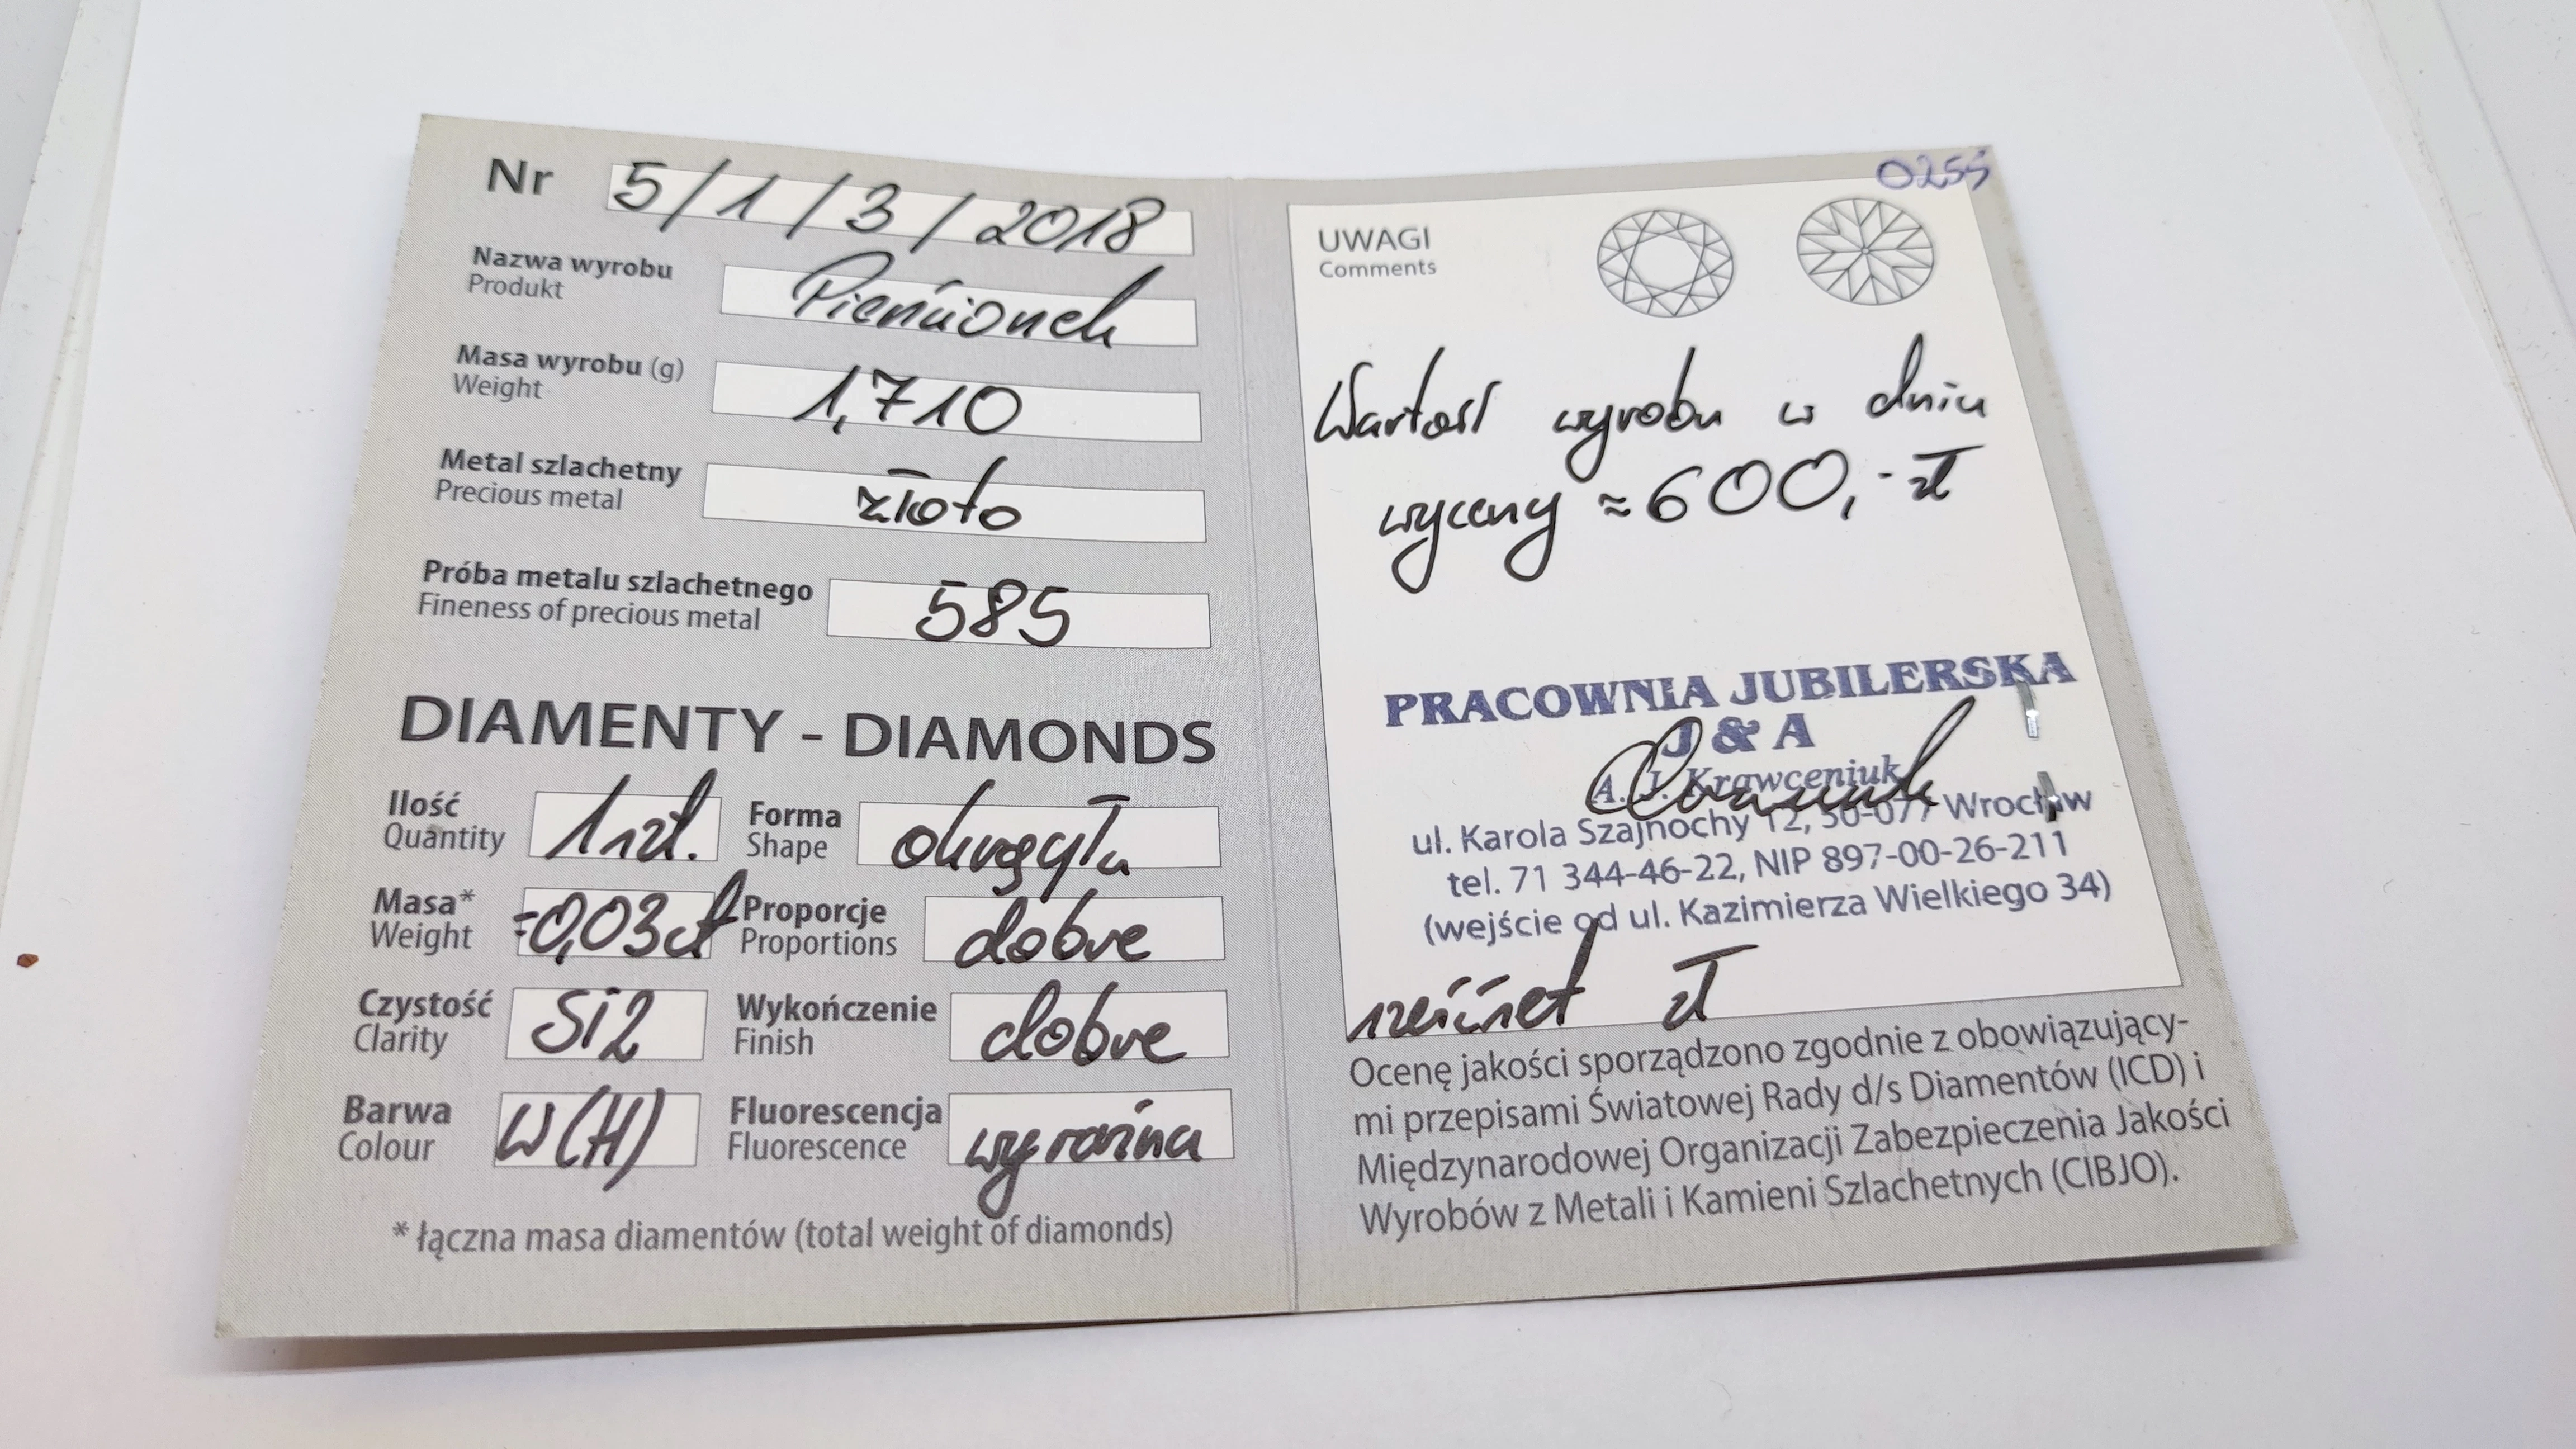 Nr 5/1/3/2018
Nazwa wyrobu Pierścionek
Produkt
Masa wyrobu (g) 1,710
Weight
Metal szlachetny złoto
Precious metal
Próba metalu szlachetnego 585
Fineness of precious metal
DIAMENTY - DIAMONDS
Ilość 1 szt. Forma okrągła
Quantity Shape
Masa* 0,03ct Proporcje dobre
Weight Proportions
Czystość Si2 Wykończenie dobre
Clarity Finish
Barwa W(H) Fluorescencja wyraźna
Colour Fluorescence
* łączna masa diamentów (total weight of diamonds)
0255
UWAGI
Comments
Wartość wyrobu w dniu
wyceny ≈ 600,- zł
PRACOWNIA JUBILERSKA
J & A
A. J. Krawceniuk
ul. Karola Szajnochy 12, 50-077 Wrocław
tel. 71 344-46-22, NIP 897-00-26-211
(wejście od ul. Kazimierza Wielkiego 34)
sześćset zł
Ocenę jakości sporządzono zgodnie z obowiązujący-
mi przepisami Światowej Rady d/s Diamentów (ICD) i
Międzynarodowej Organizacji Zabezpieczenia Jakości
Wyrobów z Metali i Kamieni Szlachetnych (CIBJO).